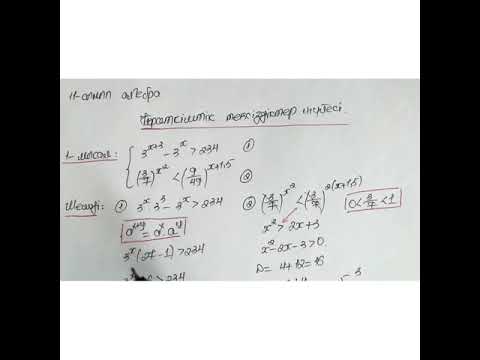 11-сынып алгебра
Көрсеткіштік теңсіздіктер жүйесі.
1-мысал: { 3^{x+3} - 3^x > 234 ①
(3/7)^{x^2} < (9/49)^{x+1,5} ②
Шешуі: ① 3^x · 3^3 - 3^x > 234
a^{x+y} = a^x a^y
3^x (27 - 1) > 234
> 234
② (3/7)^{x^2} < (3/7)^{2(x+1,5)} 0 < 3/7 < 1
x^2 > 2x + 3
x^2 - 2x - 3 > 0.
D = 4 + 12 = 16